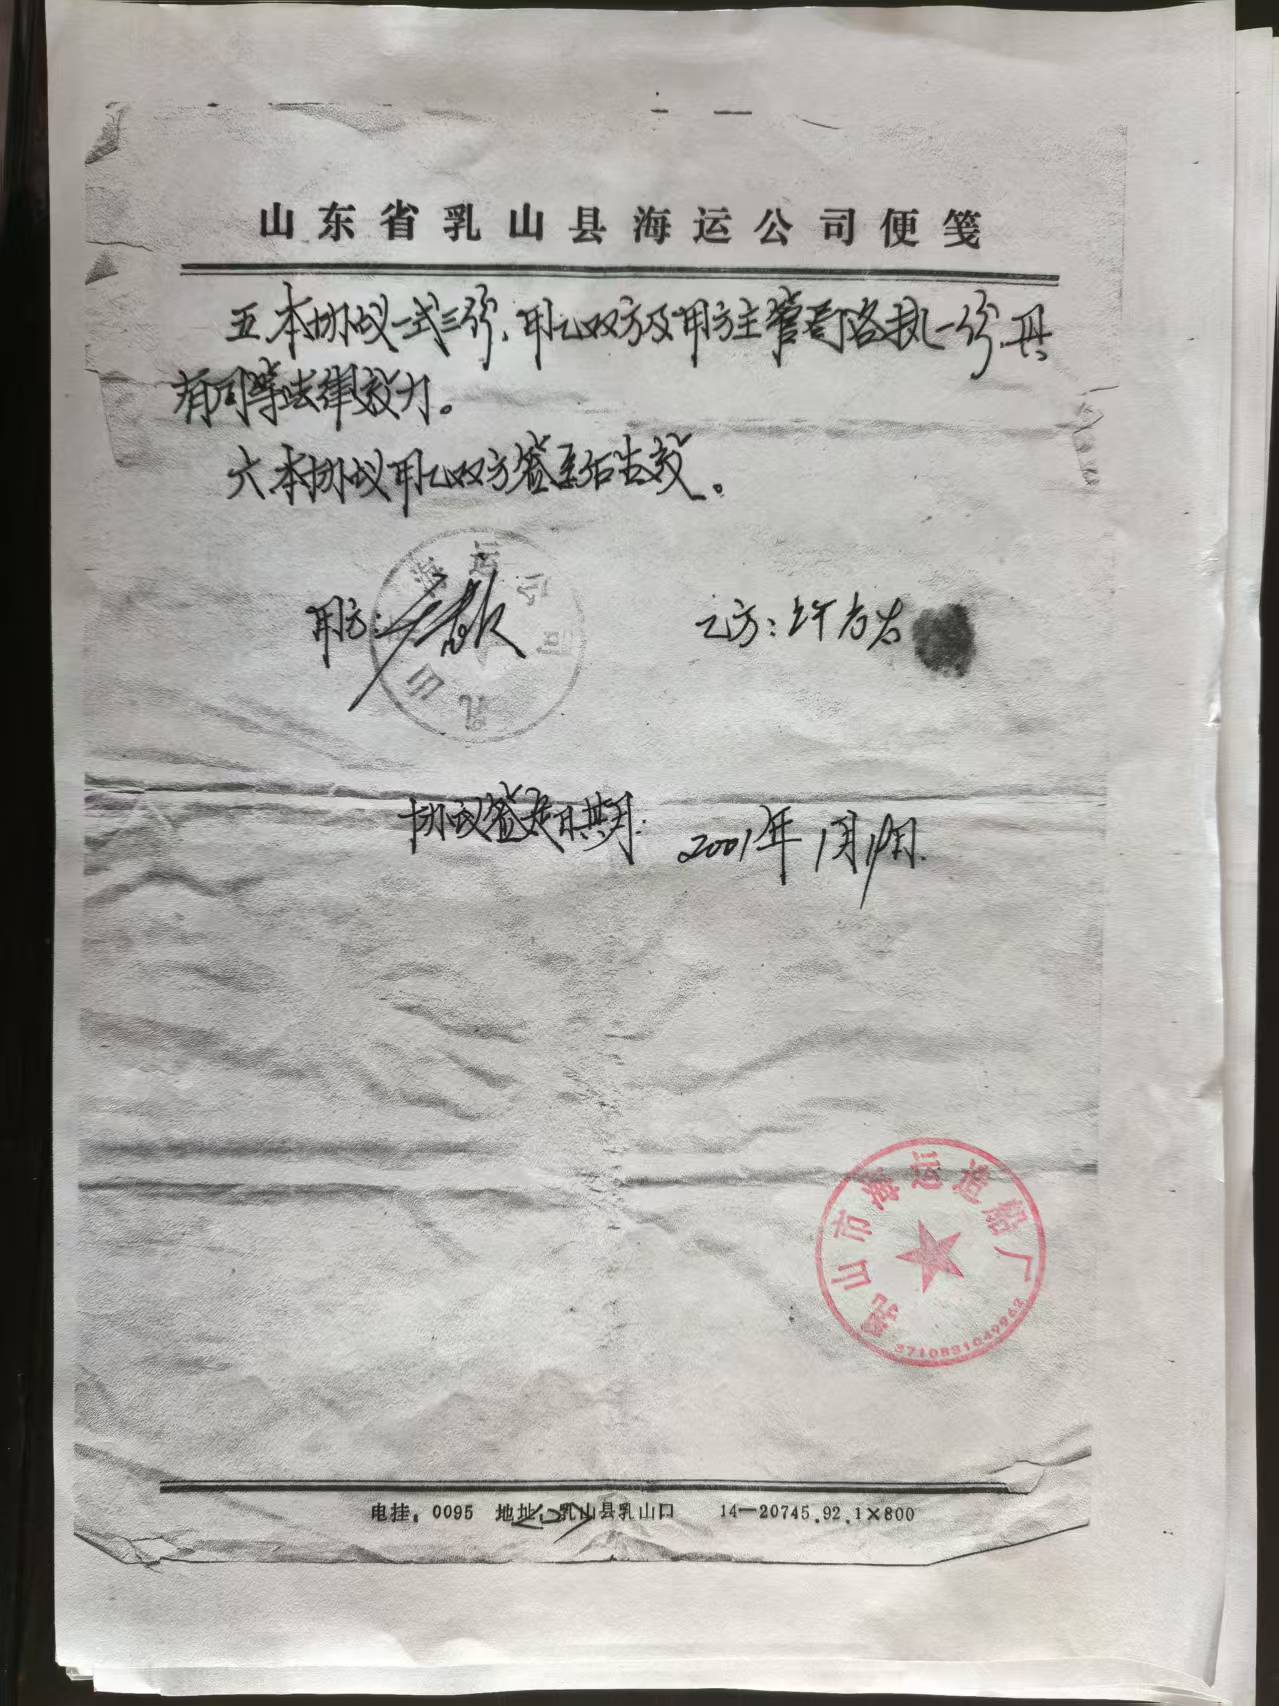 山东省乳山县海运公司便笺
五本协议一式三份,甲乙双方及甲方主管部门各执一份,具
有同等法律效力。
六本协议甲乙双方签字后生效。
甲方:
乳山海运公司
乙方:许
协议签定日期:2001年1月19日.
乳山市海运造船厂
3710831049962
电挂:0095 地址:乳山县乳山口 14—20745.92.1×800